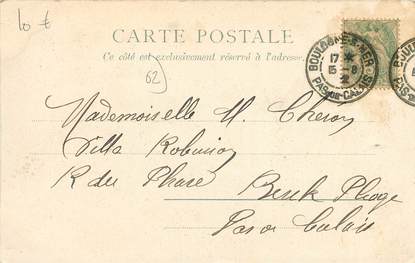 10 €
CARTE POSTALE
Ce côté est exclusivement réservé à l'adresse.
62
BOULOGNE-S-MER
17
15 -8
PAS-DE-CALAIS
Mademoiselle M. Cheron
Villa Robinson
R du Phare
Berck Plage
Pas de Calais